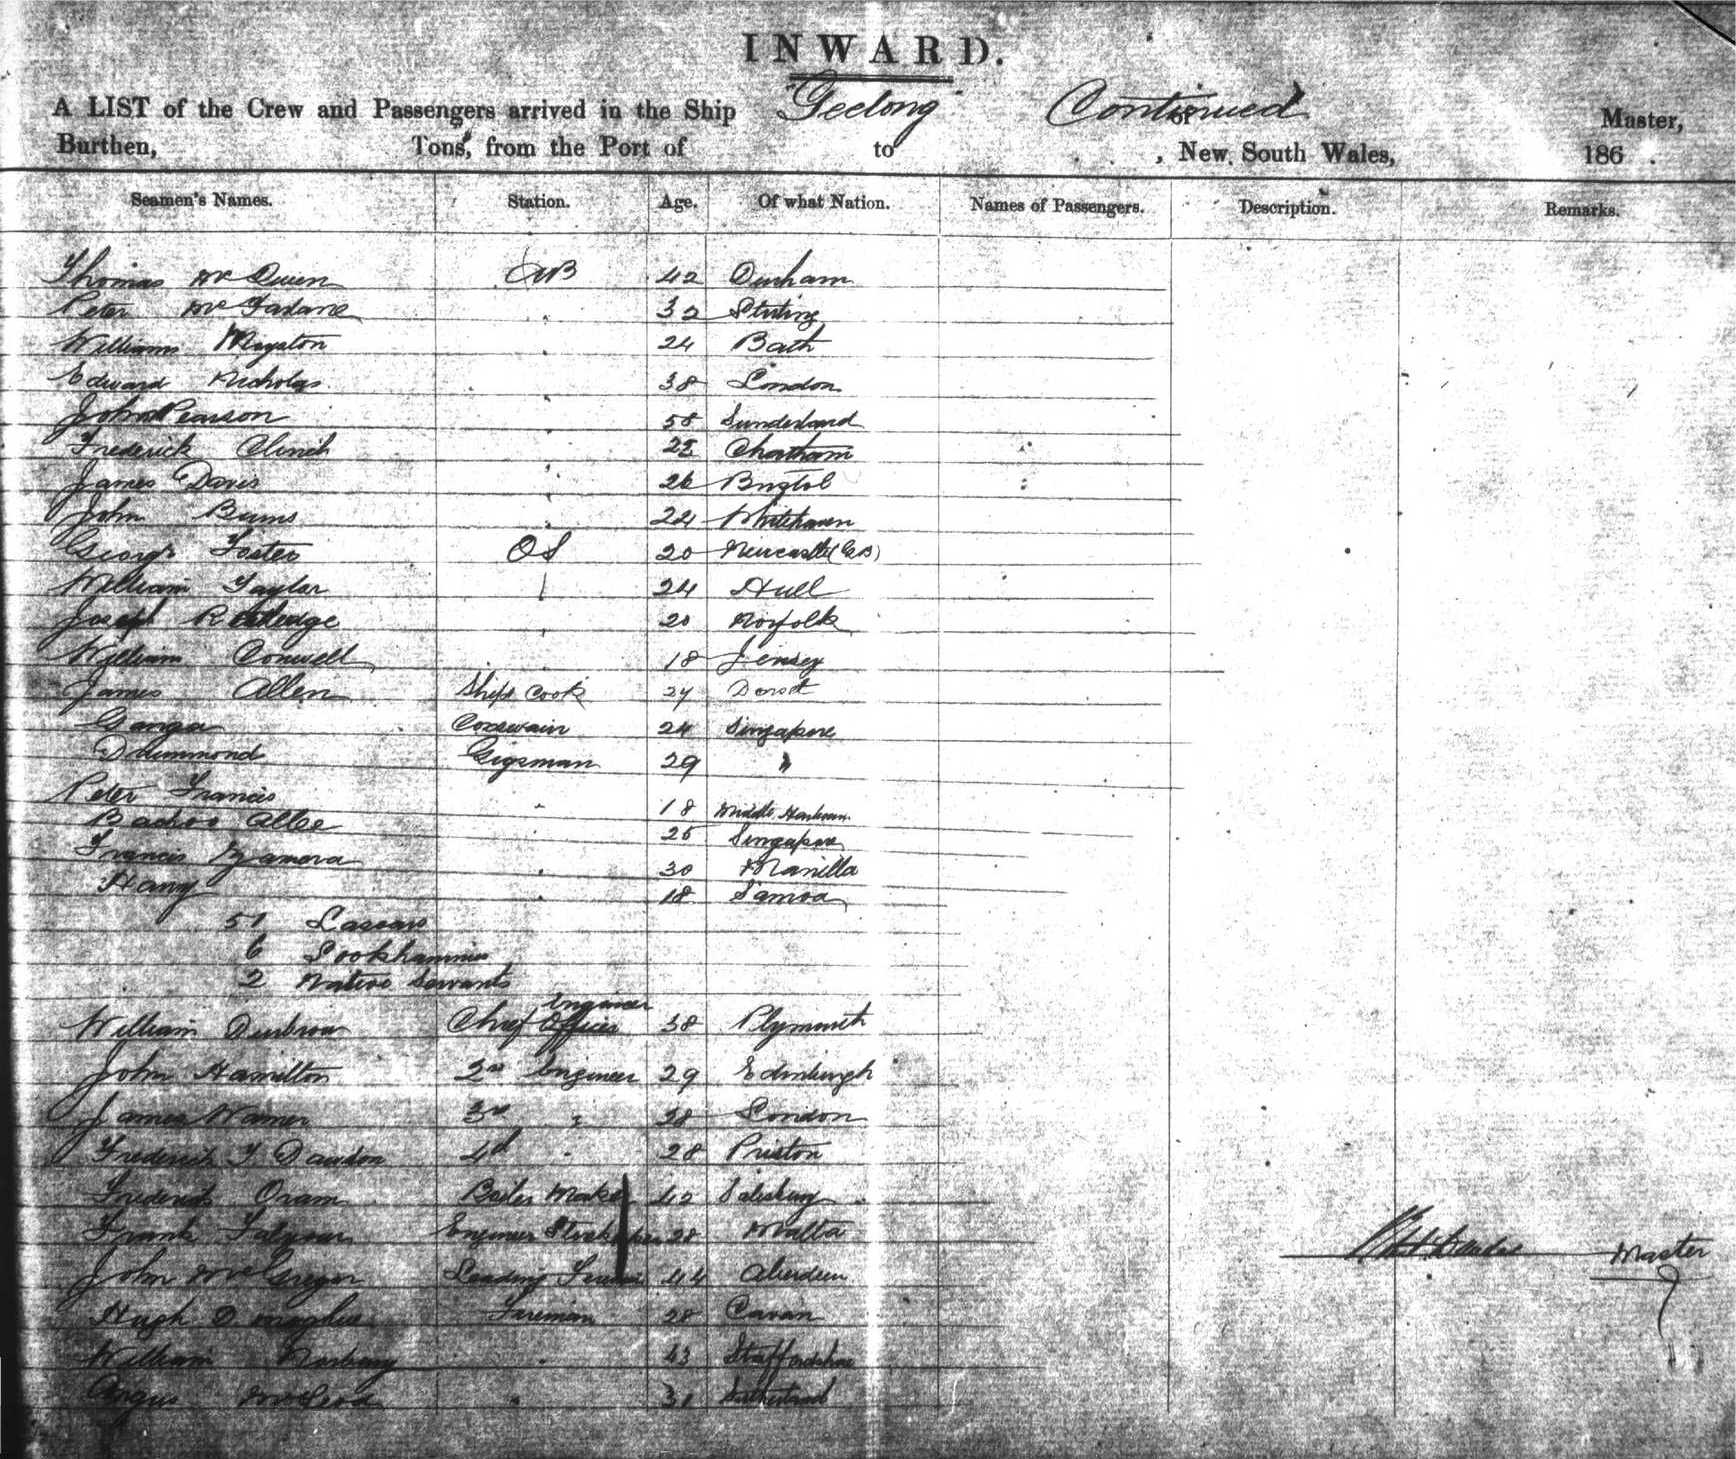 INWARD.
A LIST of the Crew and Passengers arrived in the Ship "Geelong" Continued of Master,
Burthen, Tons, from the Port of to , New South Wales, 186 .
Seamen's Names. Station. Age. Of what Nation. Names of Passengers. Description. Remarks.
Thomas McQueen AB 42 Durham
Peter McFadane 32 Stirling
William Mayston 24 Bath
Edward Nicholas 38 London
John Pearson 58 Sunderland
Frederick Clinch Chatham
James Davis 26 Bristol
John Burns 24 Whitehaven
George Foster OS 20 Newcastle (GB)
William Taylor 24 Hull
Joseph 20 Norfolk
William Conwell 18 Jersey
James Allen Ships Cook 27 Dorset
Ganga Coxswain 24 Singapore
Drummond Gigsman 29 "
Peter Francis 18 Middle Harbour
Allee 25 Singapore
Francis Zamora 30 Manilla
Harry 18 Samoa
51 Lascars
6
2 Native Servants
William Chief Engineer Officer 38 Plymouth
John Hamilton 2nd Engineer 29 Edinburgh
James Warner 3rd " 38 London
Frederick T Dawdon 4th " 28 Preston
Frederick Oram Boiler Maker 42 Salisbury
Frank Engineer Storekeeper 28 Malta
John McGregor Leading Fireman 44 Aberdeen
Hugh Donoghue Fireman 28 Cavan
William Norbury " 43 Staffordshire
Angus McLeod " 31 Sutherland
Master